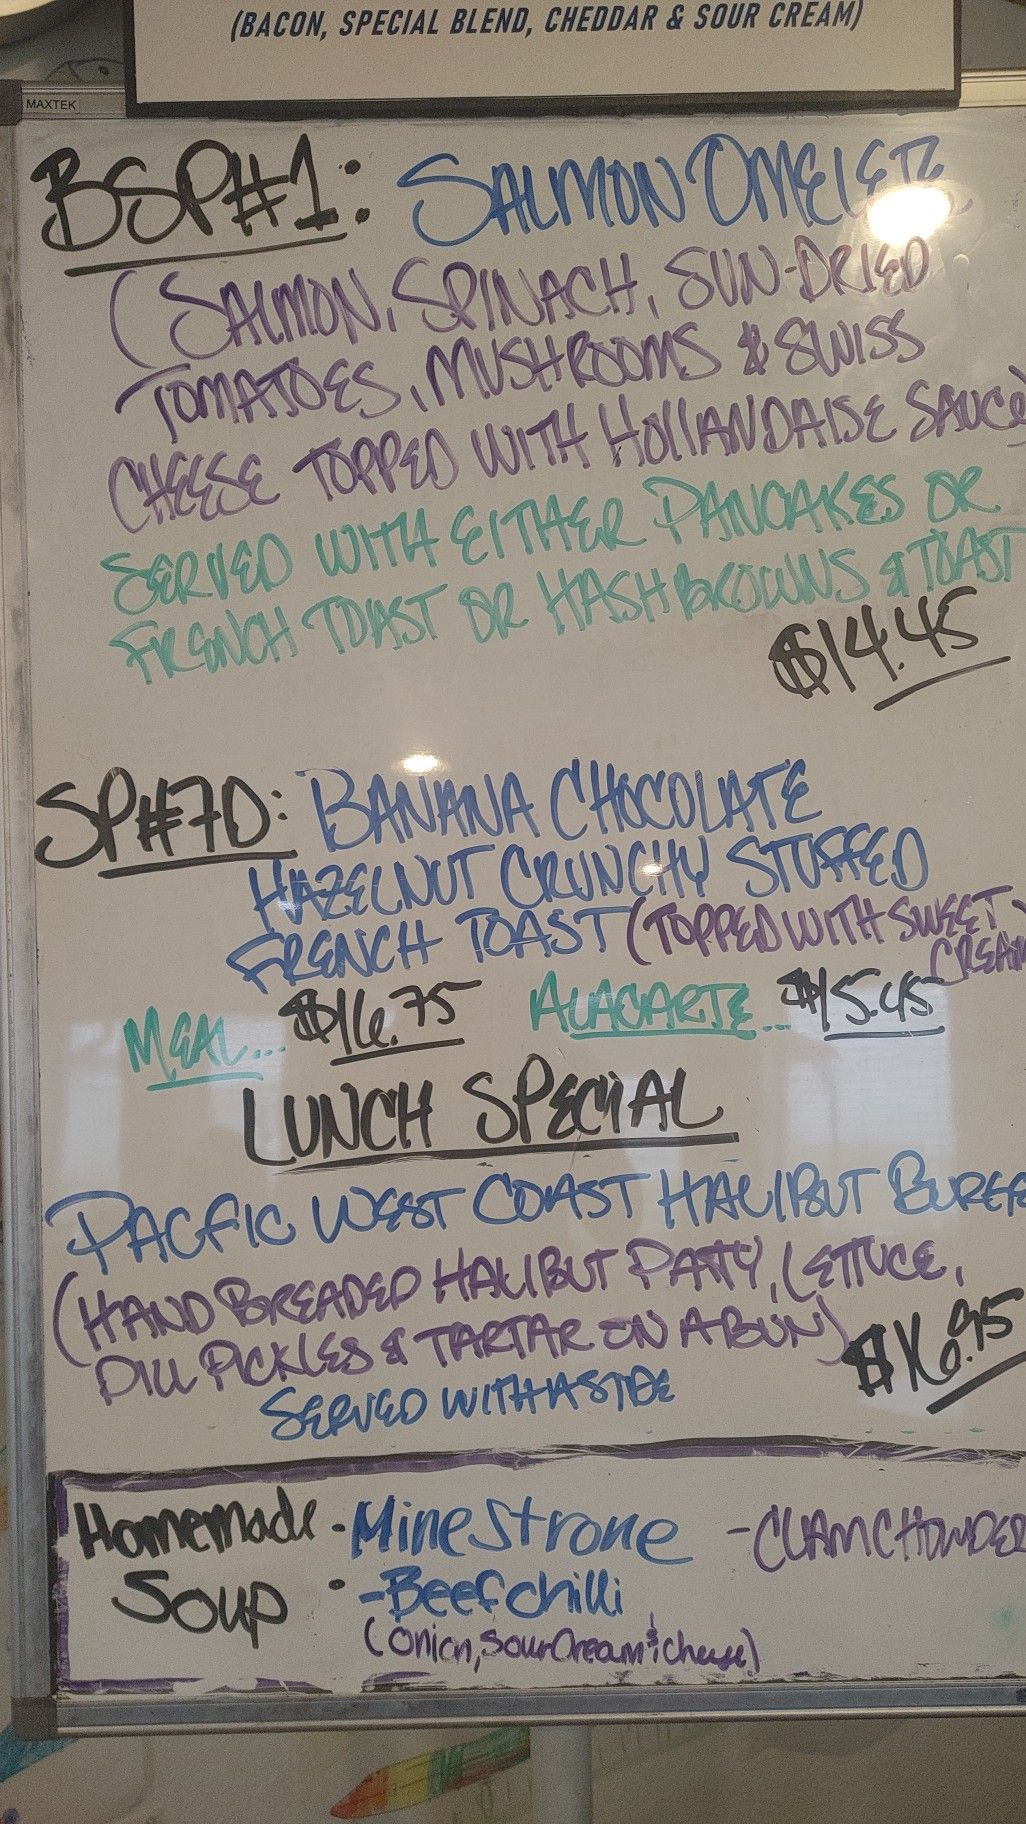 (BACON, SPECIAL BLEND, CHEDDAR & SOUR CREAM)
MAXTEK
BSP#1: SALMON OMELETE
(SALMON, SPINACH, SUN-DRIED
TOMATOES, MUSHROOMS & SWISS
CHEESE TOPPED WITH HOLLANDAISE SAUCE)
SERVED WITH EITHER PANCAKES OR
FRENCH TOAST OR HASHBROWNS & TOAST
$14.45
SP#7D: BANANA CHOCOLATE
HAZELNUT CRUNCHY STUFFED
FRENCH TOAST (TOPPED WITH SWEET
CREAM
MEAL... $16.75 ALACARTE... $15.45
LUNCH SPECIAL
PACFIC WEST COAST HALIBUT
(HAND BREADED HALIBUT PATTY, LETTUCE,
DILL PICKLES & TARTAR ON A BUN) $16.95
SERVED WITH A SIDE
Homemade - Minestrone - CLAM CHOWDER
Soup • - Beef chilli
(onion, sour cream & cheese)